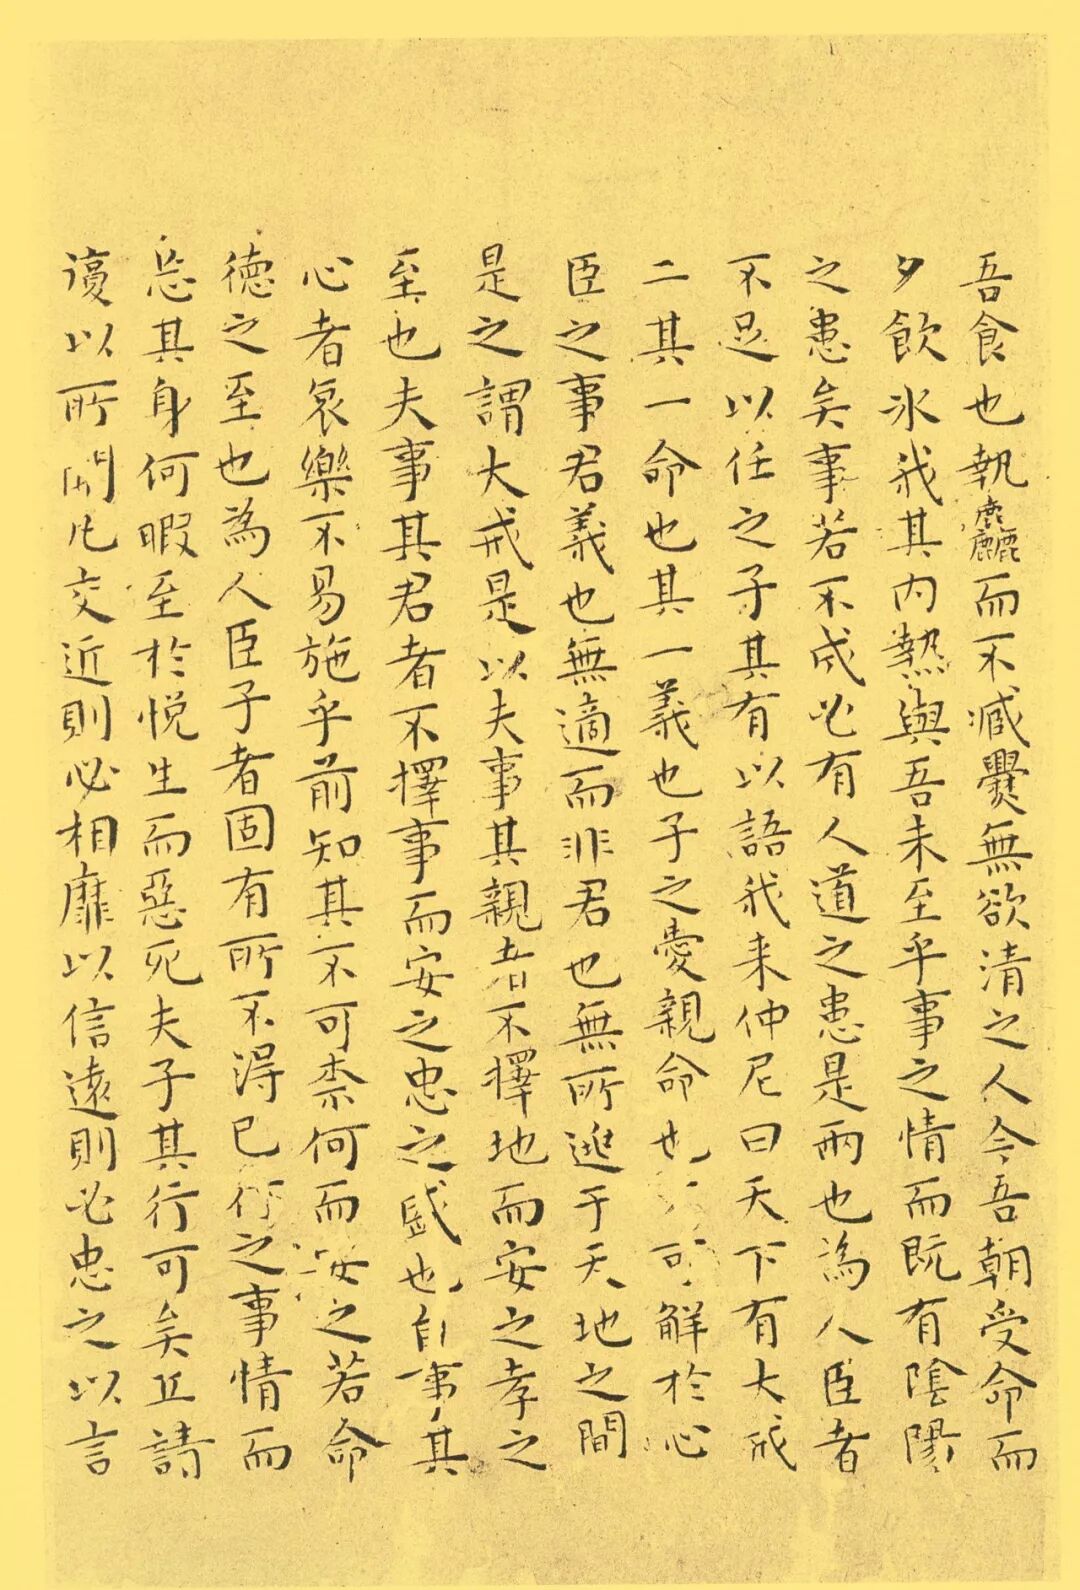 吾食也執麤而不臧爨無欲清之人今吾朝受命而
夕飲冰我其内熱與吾未至乎事之情而既有陰陽
之患矣事若不成必有人道之患是兩也為人臣者
不足以任之子其有以語我来仲尼曰天下有大戒
二其一命也其一義也子之愛親命也可解於心
臣之事君義也無適而非君也無所逃于天地之間
是之謂大戒是以夫事其親者不擇地而安之孝之
至也夫事其君者不擇事而安之忠之盛也自事其
心者哀樂不易施乎前知其不可柰何而安之若命
德之至也為人臣子者固有所不得已行之事情而
忘其身何暇至於悅生而惡死夫子其行可矣丘請
以所聞凡交近則必相靡以信遠則必忠之以言